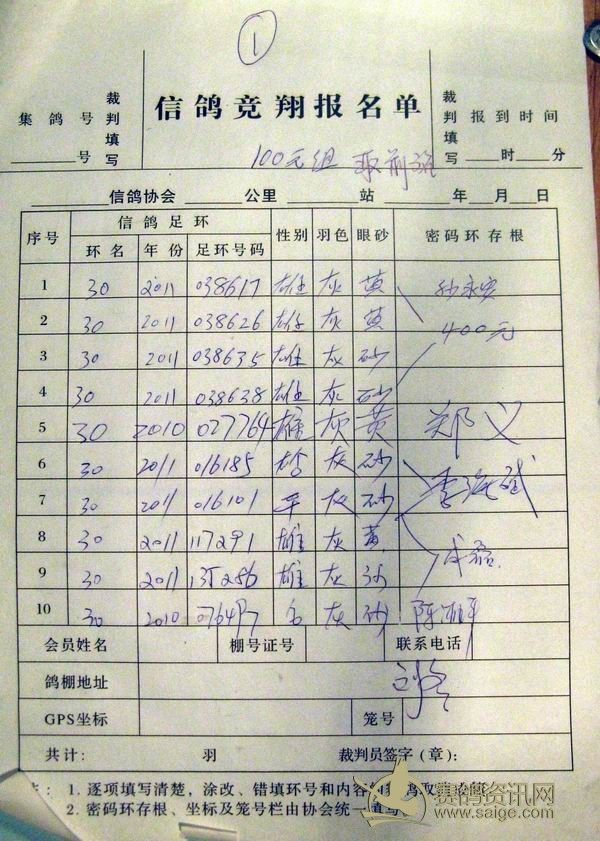 1
集鸽号 裁判填写 信鸽竞翔报名单 裁判填写 报到时间
号 时 分
100元组 取前
信鸽协会 公里 站 年 月 日
序号 信鸽足环 性别 羽色 眼砂 密码环存根
环名 年份 足环号码
1 30 2011 038617 雄 灰 黄
2 30 2011 038626 雄 灰 黄
400元
3 30 2011 038635 雄 灰 砂
4 30 2011 038638 雄 灰 砂
5 30 2010 027764 雄 灰 黄 郑义
6 30 2011 016185 灰 砂
7 30 2011 016101 灰 砂
8 30 2011 117291 雄 灰 黄
9 30 2011 135256 雄 灰 砂
10 30 2010 灰 砂 陈
会员姓名 棚号证号 联系电话
鸽棚地址
GPS坐标 笼号
共计: 羽 裁判员签字(章):
注: 1. 逐项填写清楚,涂改、错填环号和内容
2. 密码环存根、坐标及笼号栏由协会统一填写
赛鸽资讯网
www.saige.com